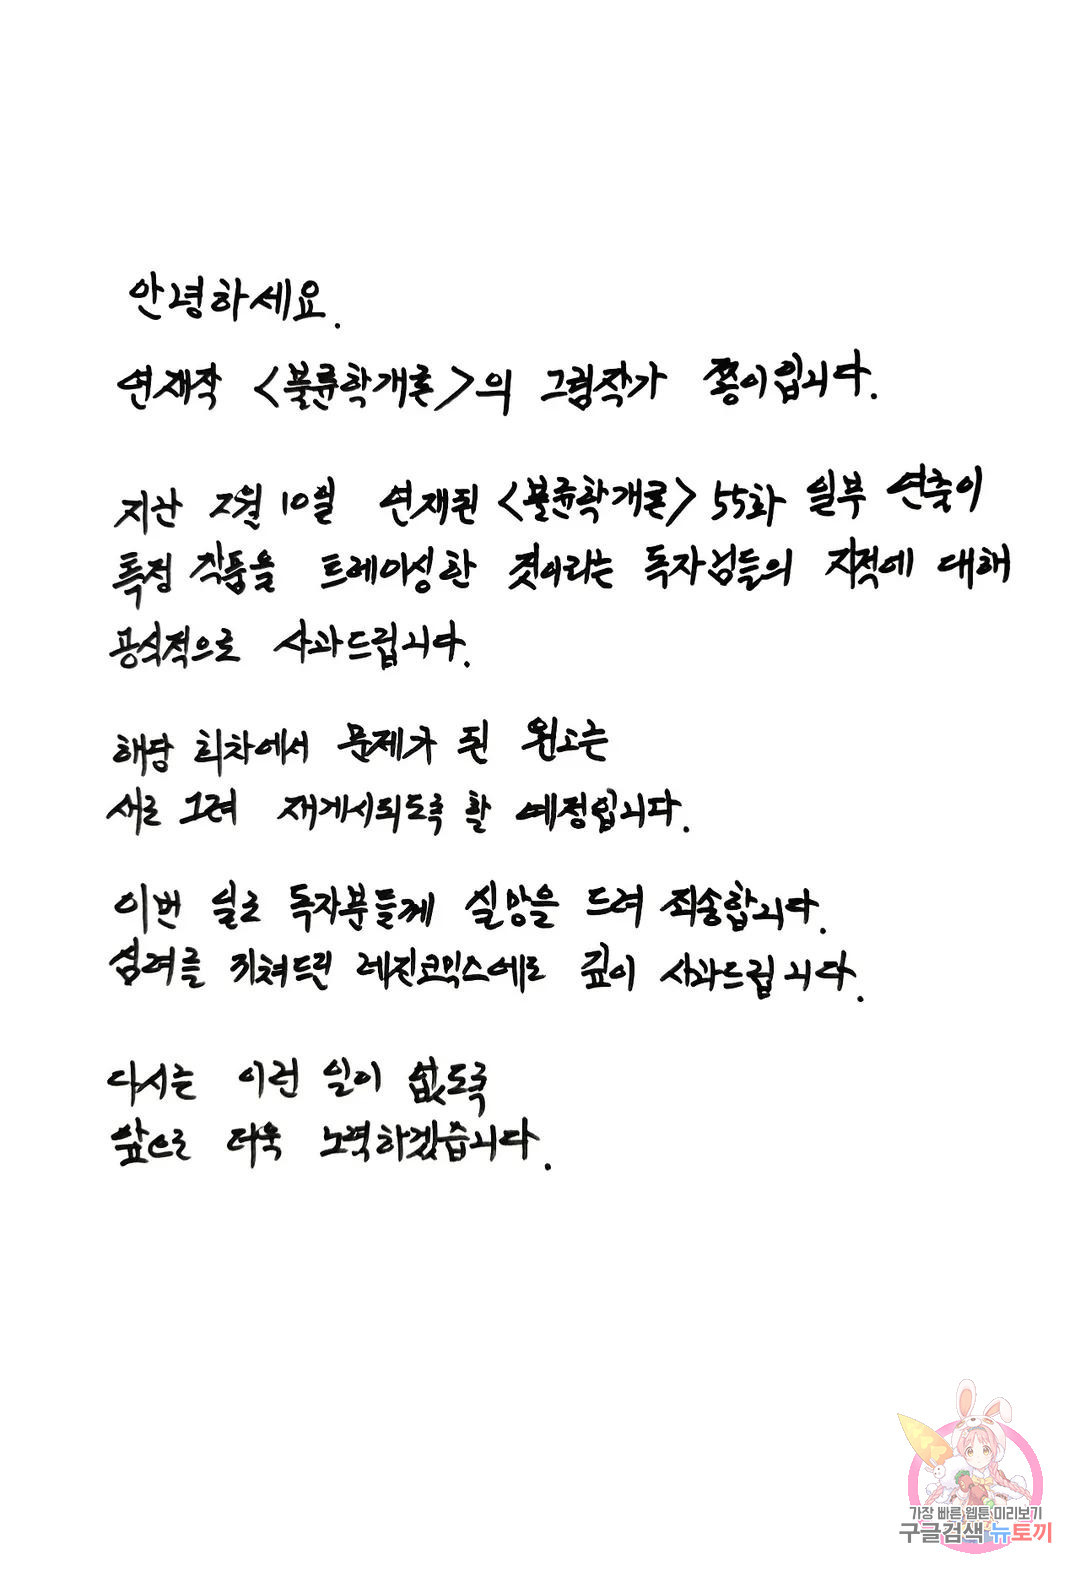 안녕하세요.
연재작 <불륜학개론>의 그림작가 쫑이입니다.
지난 2월 10일 연재된 <불륜학개론> 55화 일부 연출이
특정 작품을 트레이싱한 것이라는 독자님들의 지적에 대해
공식적으로 사과드립니다.
해당 회차에서 문제가 된 원고는
새로 그려 재게시되도록 할 예정입니다.
이번 일로 독자분들께 실망을 드려 죄송합니다.
심려를 끼쳐드린 레진코믹스에도 깊이 사과드립니다.
다시는 이런 일이 없도록
앞으로 더욱 노력하겠습니다.
가장 빠른 웹툰 미리보기
구글검색 뉴토끼